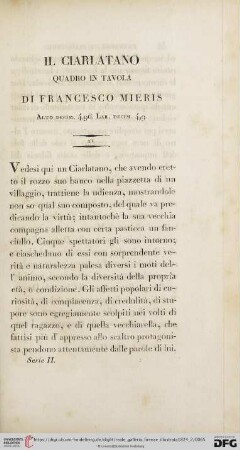 IL CIARLATANO
QUADRO IN TAVOLA
DI FRANCESCO MIERIS
ALTO DECIM. 4,96 LAR. DECIM. 4,9
Vedesi qui un Ciarlatano, che avendo eret-
to il rozzo suo banco nella piazzetta di un
villaggio, trattiene la udienza, mostrandole
non so qual suo composto, del quale va pre-
dicando la virtù; intantochè la sua vecchia
compagna alletta con certa pasticca un fan-
ciullo. Cinque spettatori gli sono intorno;
e ciaschedun di essi con sorprendente veri-
tà e naturalezza palesa diversi i moti del-
l' animo, secondo la diversità della propria
età, e condizione. Gli affetti popolari di cu-
riosità, di compiacenza, di credulità, di stu-
pore sono egregiamente scolpiti nei volti di
quel ragazzo, e di quella vecchiarella, che
fattisi più d' appresso allo scaltro protagoni-
sta pendono attentamente dalle parole di lui.
Serie II.
UNIVERSITÄTS-
BIBLIOTHEK
HEIDELBERG
DFG